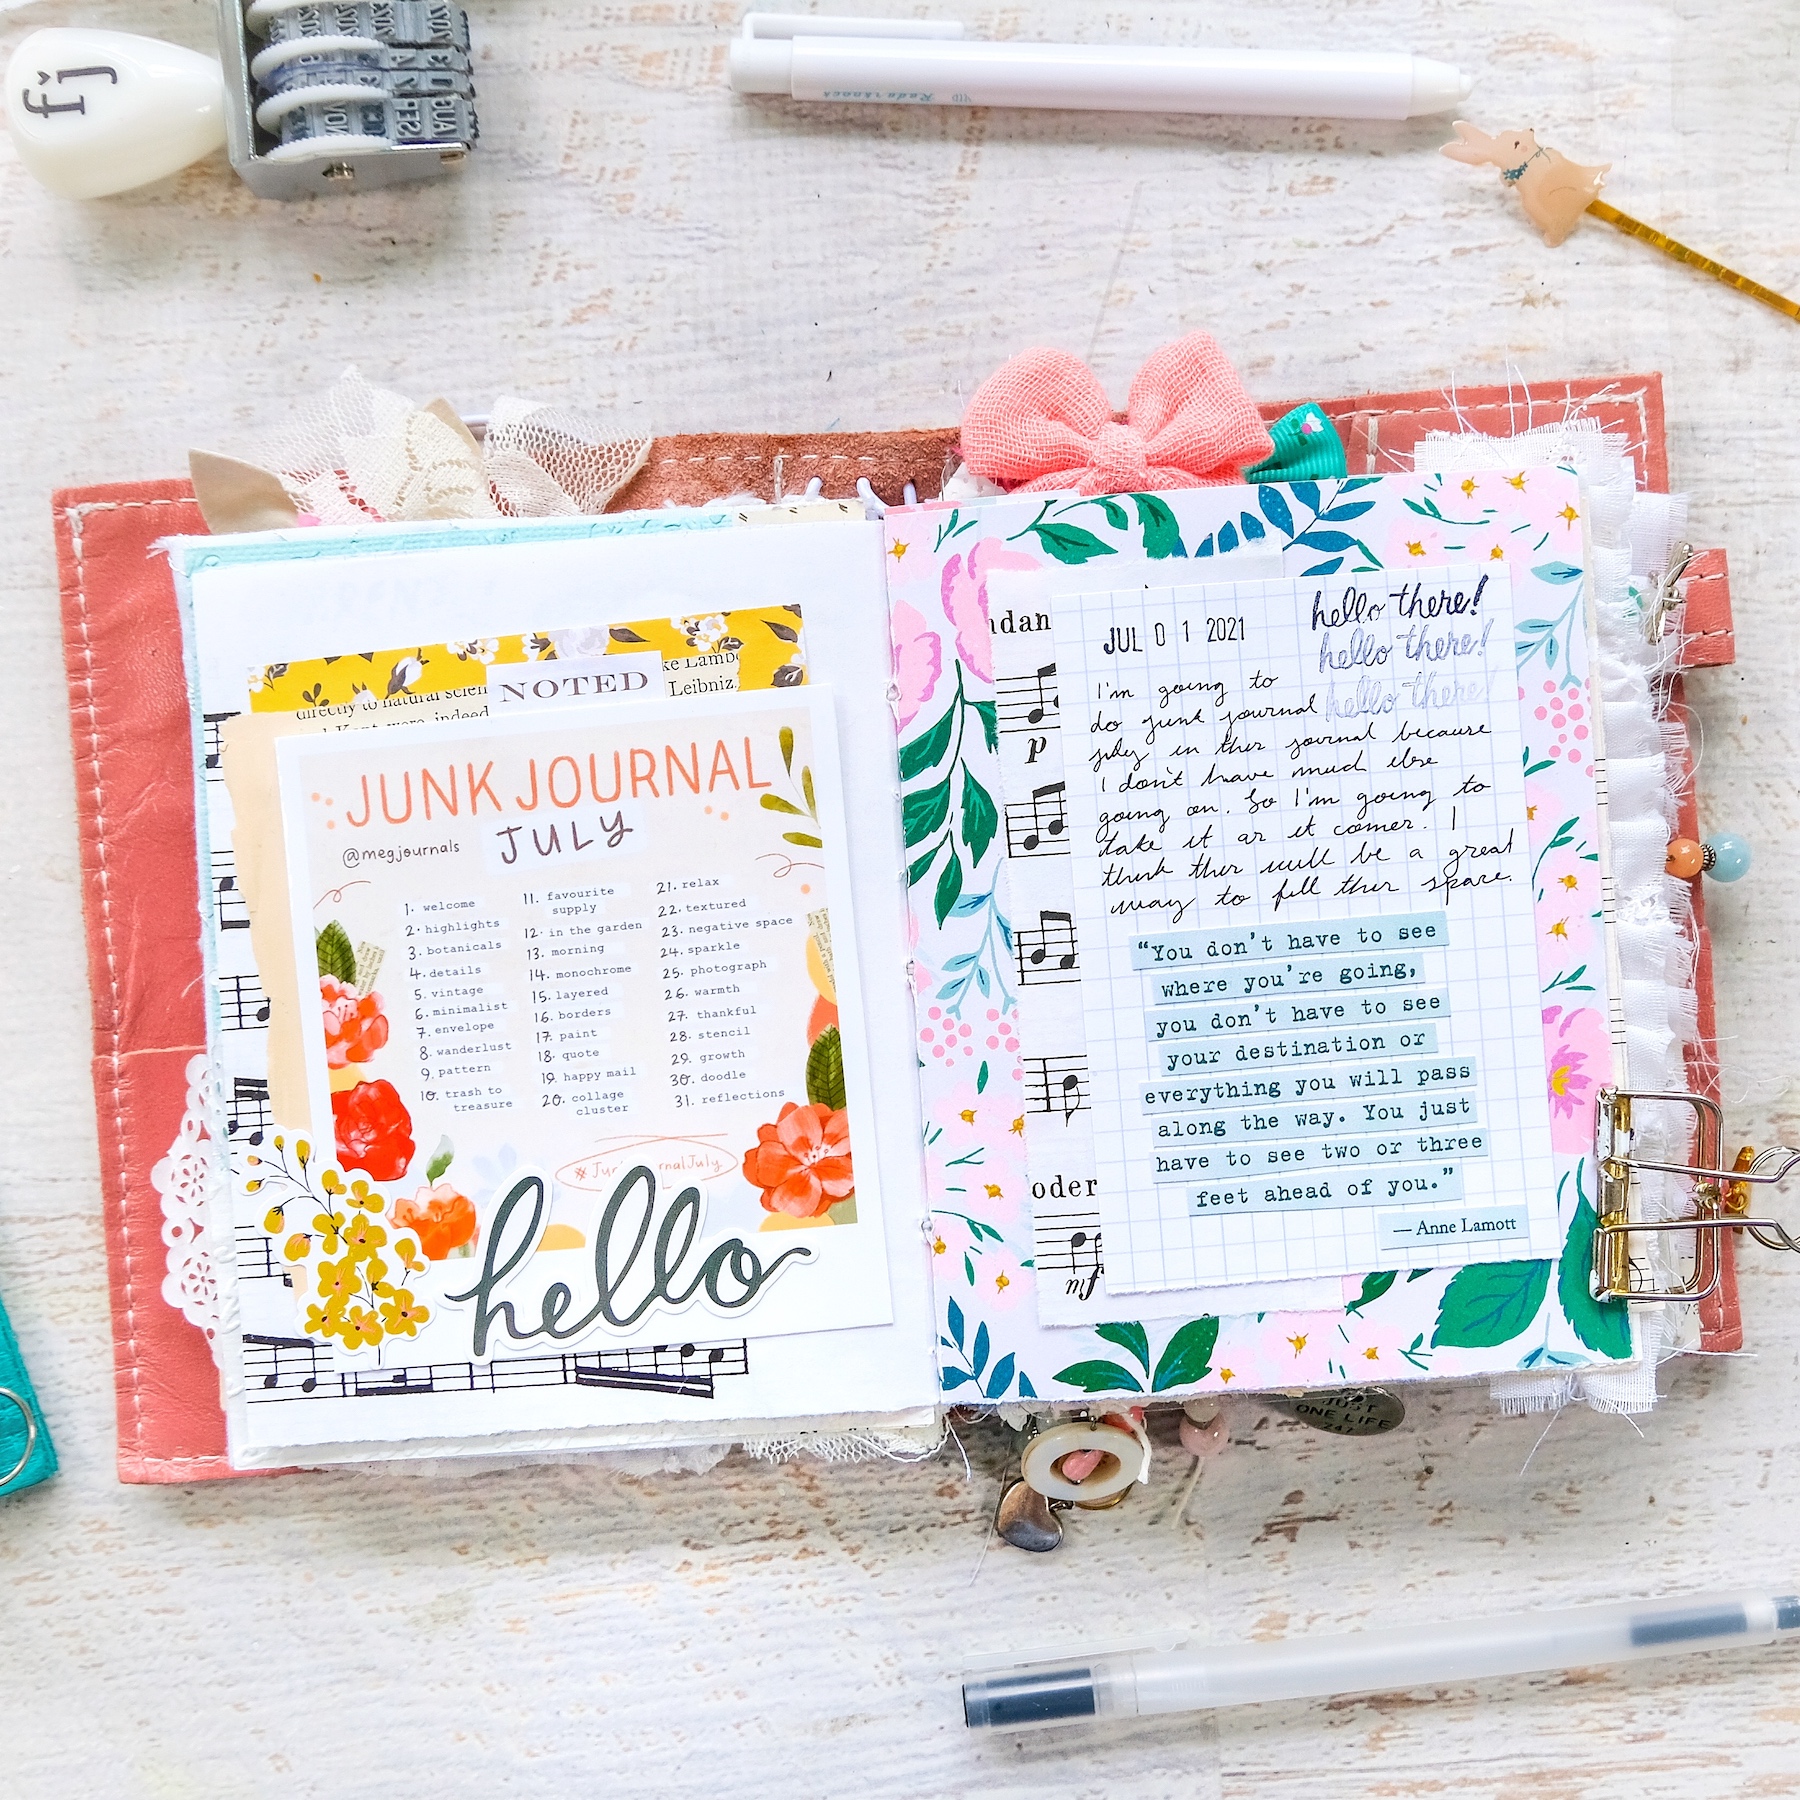 fj
NOV
SEP
AUG
NOTED
ke Lamb
Leibniz.
directly to natural scien
JUNK JOURNAL
JULY
@megjournals
1. welcome
2. highlights
3. botanicals
4. details
5. vintage
6. minimalist
7. envelope
8. wanderlust
9. pattern
10. trash to
treasure
11. favourite
supply
12. in the garden
13. morning
14. monochrome
15. layered
16. borders
17. paint
18. quote
19. happy mail
20. collage
cluster
21. relax
22. textured
23. negative space
24. sparkle
25. photograph
26. warmth
27. thankful
28. stencil
29. growth
30. doodle
31. reflections
hello
ndan
p
oder
JUL 01 2021
hello there!
hello there!
hello there!
I'm going to
do junk journal
july in this journal because
I don't have much else
going on. So I'm going to
take it as it comes. I
think this will be a great
way to fill this space.
“You don't have to see
where you're going,
you don't have to see
your destination or
everything you will pass
along the way. You just
have to see two or three
feet ahead of you.”
— Anne Lamott
JUST
ONE LIFE
247